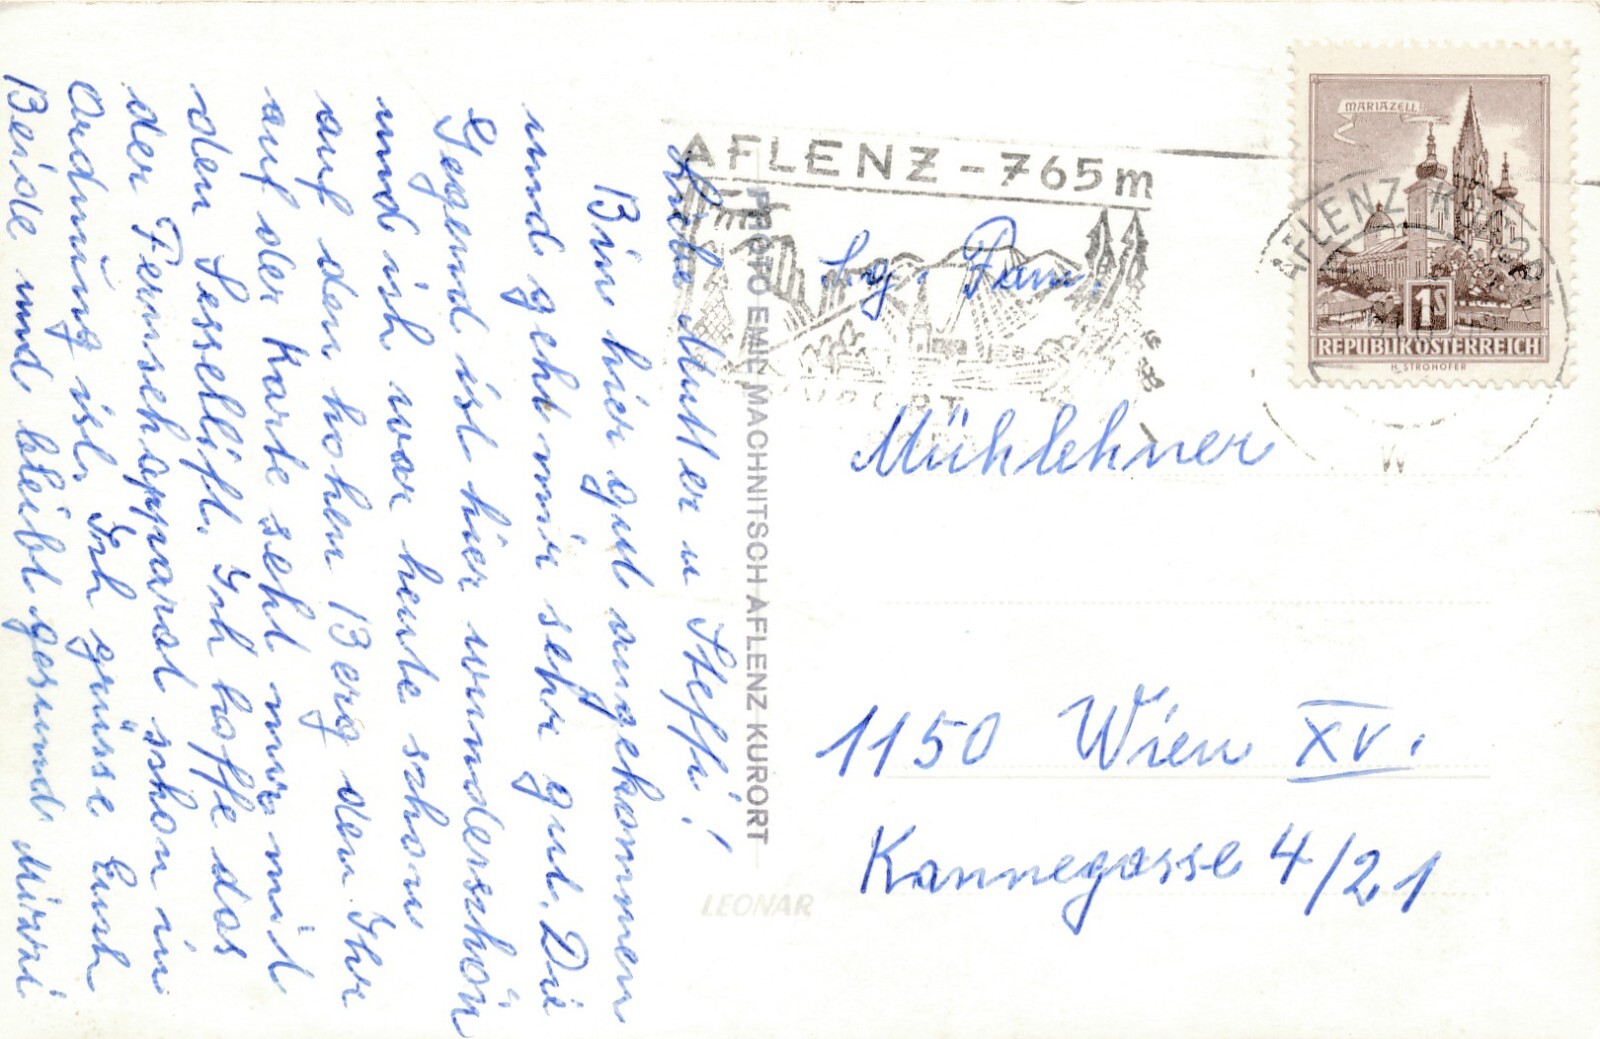 Liebe Mutter u Steffi!
Bin hier gut angekommen
und geht mir sehr gut. Die
Gegend ist hier wunderschön
und ich war heute schon
auf den hohen Berg den Ihr
auf der Karte seht nur mit
den Sessellift. Ich hoffe das
der Fernsehapparat schon in
Ordnung ist. Ich grüsse Euch
Beide und bleibt gesund Mirzi
PHOTO EMIE MACHNITSCH AFLENZ KURORT
LEONAR
AFLENZ - 765 m
KURORT
MARIAZELL
1S
REPUBLIK ÖSTERREICH
H. STROHOFER
AFLENZ KURORT
W
Sg. Fam.
Mühlehner
1150 Wien XV.
Kannegasse 4/21